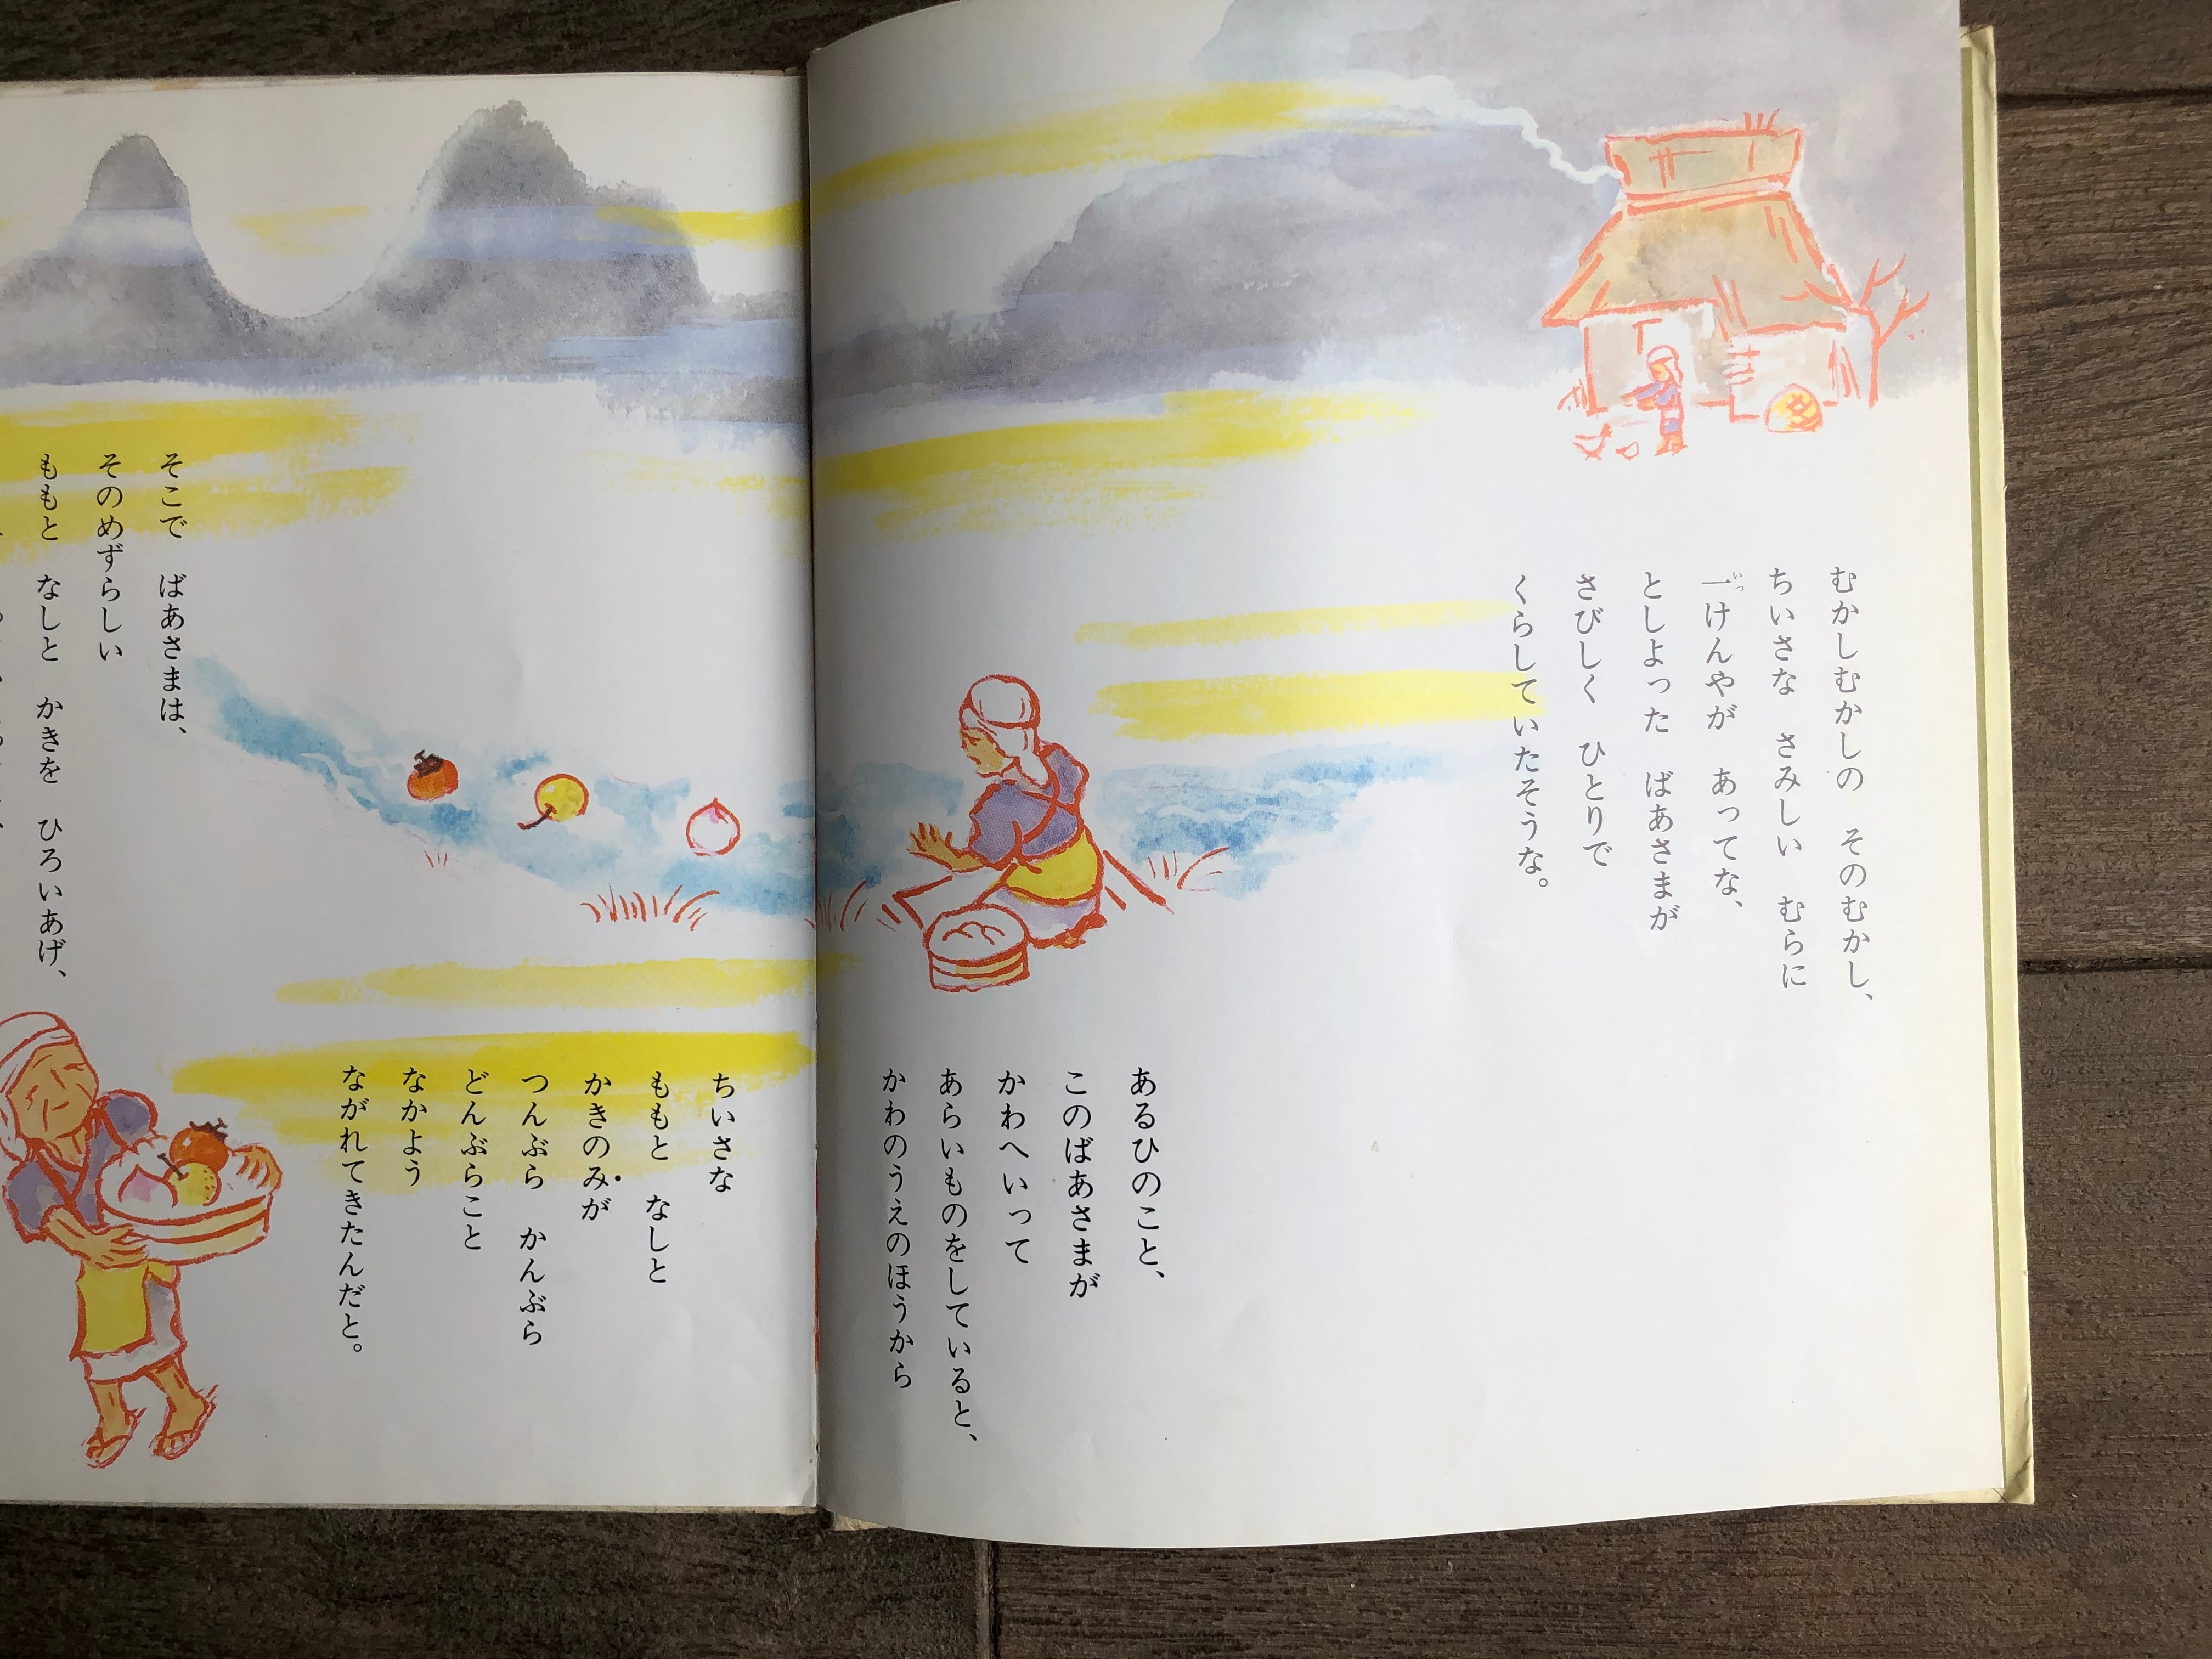 むかしむかしの そのむかし、
ちいさな さみしい むらに
一けんやが あってな、
としよった ばあさまが
さびしく ひとりで
くらしていたそうな。
あるひのこと、
このばあさまが
かわへいって
あらいものをしていると、
かわのうえのほうから
ちいさな
ももと なしと
かきのみが
つんぶら かんぶら
どんぶらこと
なかよう
ながれてきたんだと。
そこで ばあさまは、
そのめずらしい
ももと なしと かきを ひろいあげ、